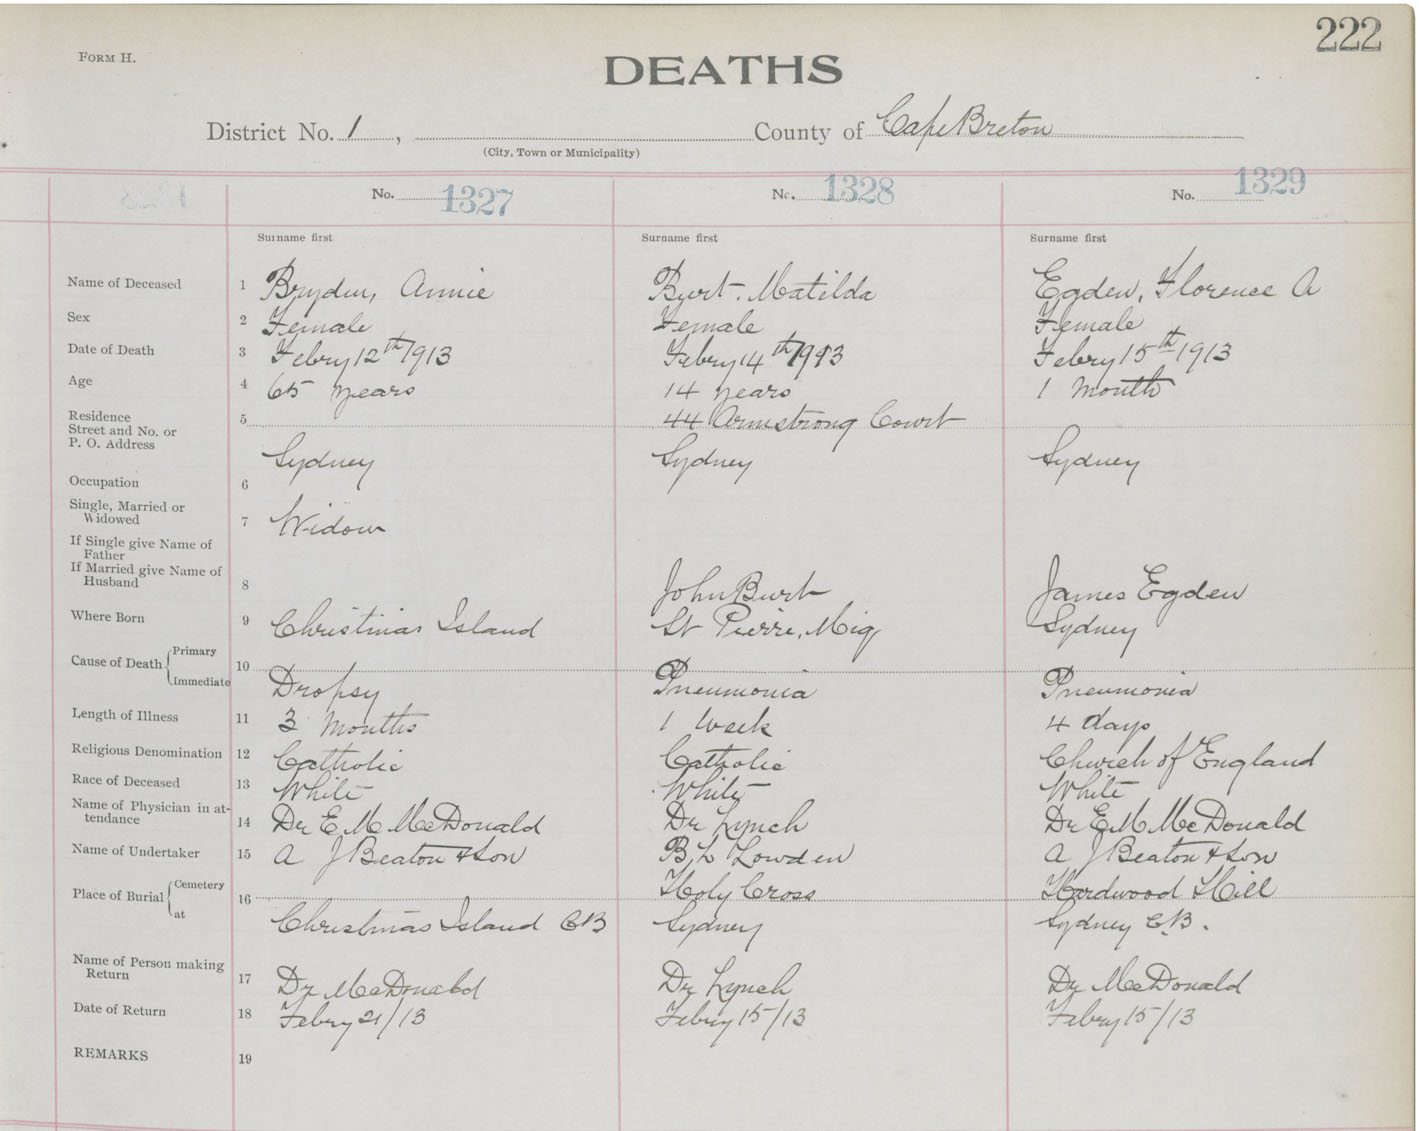 222
FORM H.
DEATHS
District No. 1, County of Cape Breton
(City, Town or Municipality)
No. 1327 No. 1328 No. 1329
Surname first Surname first Surname first
Name of Deceased 1 Bryden, Annie Burt. Matilda Egden, Florence A
Sex 2 Female Female Female
Date of Death 3 Febry 12th 1913 Febry 14th 1913 Febry 15th 1913
Age 4 65 years 14 years 1 month
Residence
Street and No. or 5 44 Armstrong Court
P. O. Address
Sydney Sydney Sydney
Occupation 6
Single, Married or
Widowed 7 Widow
If Single give Name of
Father
If Married give Name of
Husband 8 John Burt James Egden
Where Born 9 Christmas Island St Pierre, Miq Sydney
Primary
Cause of Death 10
Immediate Dropsy Pneumonia Pneumonia
Length of Illness 11 3 Months 1 Week 4 days
Religious Denomination 12 Catholic Catholic Church of England
Race of Deceased 13 White White White
Name of Physician in at-
tendance 14 Dr E M McDonald Dr Lynch Dr E M McDonald
Name of Undertaker 15 A J Beaton & Son B, L Lowden A J Beaton & Son
Cemetery Holy Cross Hardwood Hill
Place of Burial 16
at Christmas Island CB Sydney Sydney C.B.
Name of Person making
Return 17 Dr McDonald Dr Lynch Dr McDonald
Date of Return 18 Febry 21/13 Febry 15/13 Febry 15/13
REMARKS 19